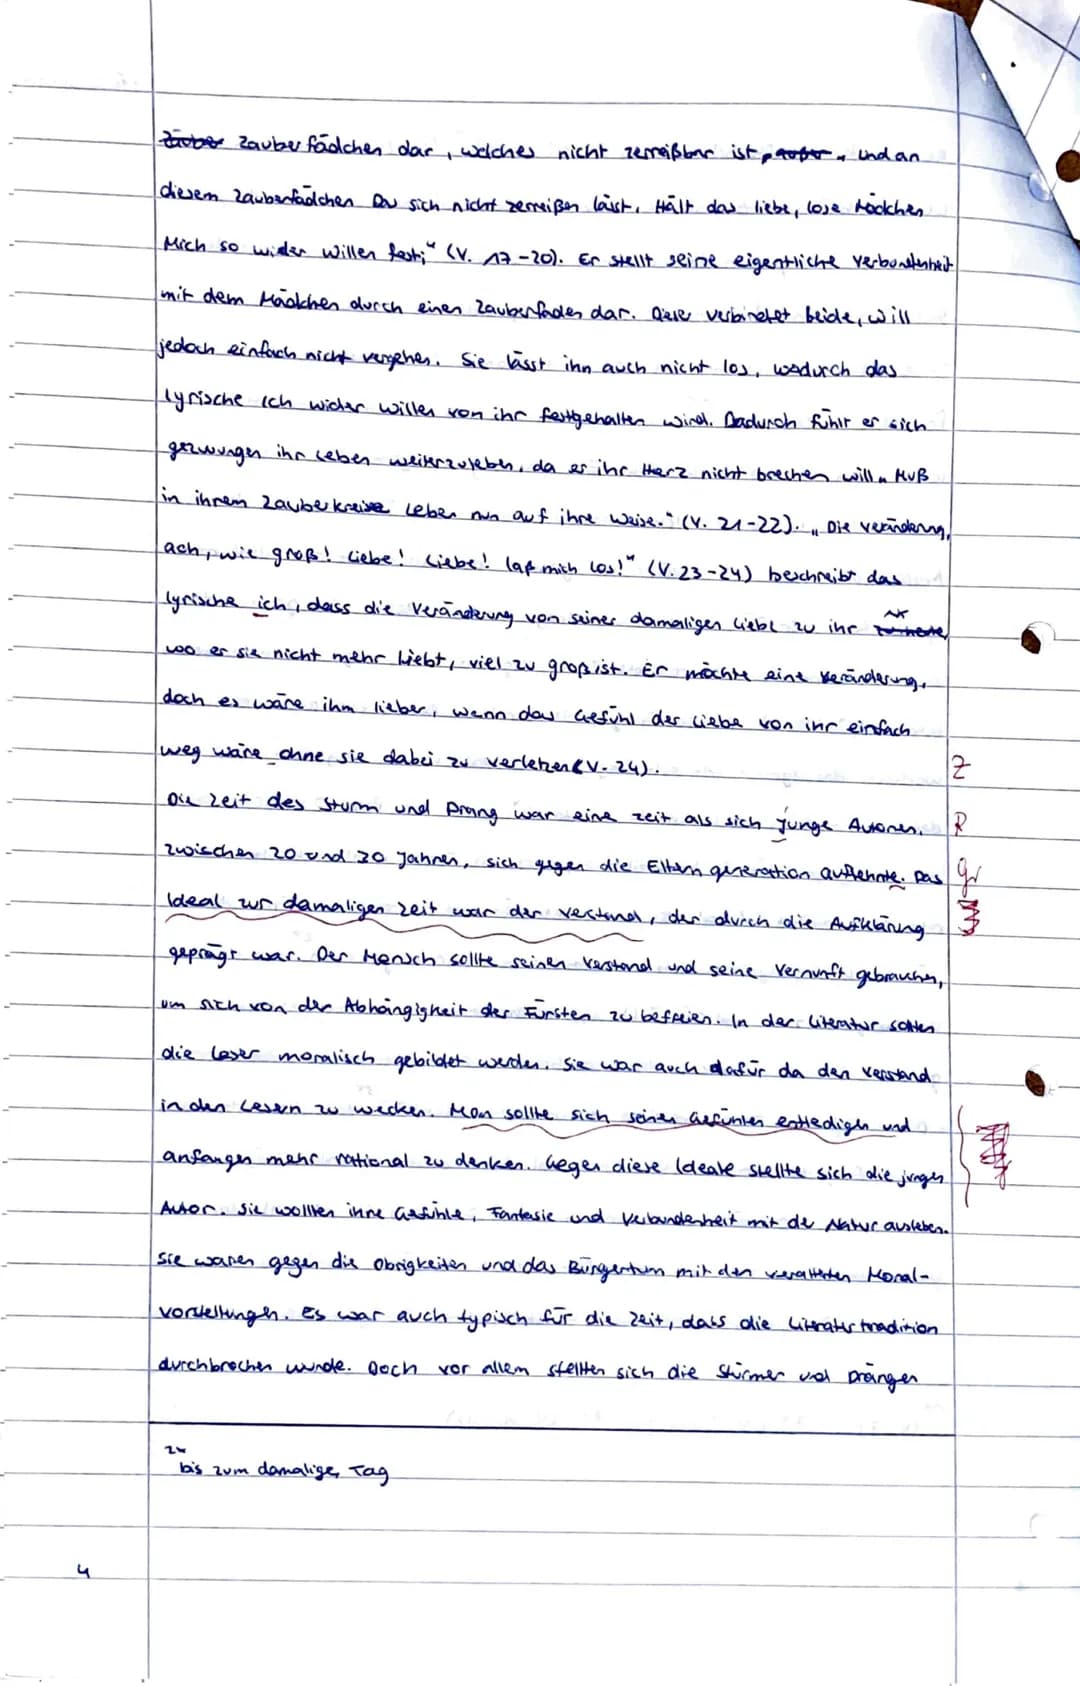 Zauberfädchen dar, welches nicht zerreißbar ist, „Und an
diesem Zauberfädchen Das sich nicht zerreißen lässt, Hält das liebe, lose Mädchen
Mich so wider Willen fest;" (V. 17-20). Er stellt seine eigentliche Verbundenheit
mit dem Mädchen durch einen Zauberfaden dar. Dieser verbindet beide, will
jedoch einfach nicht vergehen. Sie lässt ihn auch nicht los, wodurch das
lyrische Ich wider Willen von ihr festgehalten wird. Dadurch fühlt er sich
gezwungen ihr Leben weiterzuleben, da er ihr Herz nicht brechen will „Muß
in ihrem Zauberkreise Leben nun auf ihre Weise." (V. 21-22). „Die Veränderung,
ach, wie groß! Liebe! Liebe! laß mich los!" (V. 23-24) beschreibt das
lyrische ich, dass die Veränderung von seiner damaligen Liebe zu ihr
wo er sie nicht mehr liebt, viel zu groß ist. Er möchte eine Veränderung,
doch es wäre ihm lieber, wenn das Gefühl der Liebe von ihr einfach
weg wäre ohne sie dabei zu verletzen (V. 24). Z
Die Zeit des Sturm und Drang war eine Zeit als sich junge Autoren, R
zwischen 20 und 30 Jahren, sich gegen die Elterngeneration auflehnte. Das gr
Ideal zur damaligen Zeit war der Verstand, der durch die Aufklärung
geprägt war. Der Mensch sollte seinen Verstand und seine Vernunft gebrauchen,
um sich von der Abhängigkeit der Fürsten zu befreien. In der Literatur sollten
die Leser moralisch gebildet werden. Sie war auch dafür da den Verstand
in den Lesern zu wecken. Man sollte sich seinen Gefühlen entledigen und
anfangen mehr rational zu denken. Gegen diese Ideale stellte sich die jungen
Autor. Sie wollten ihre Gefühle, Fantasie und Verbundenheit mit der Natur ausleben.
Sie waren gegen die Obrigkeiten und das Bürgertum mit den veralteten Moral-
vorstellungen. Es war auch typisch für die Zeit, dass die Literaturtradition
durchbrochen wurde. Doch vor allem stellten sich die Stürmer und Dränger
bis zum damalige Tag
4